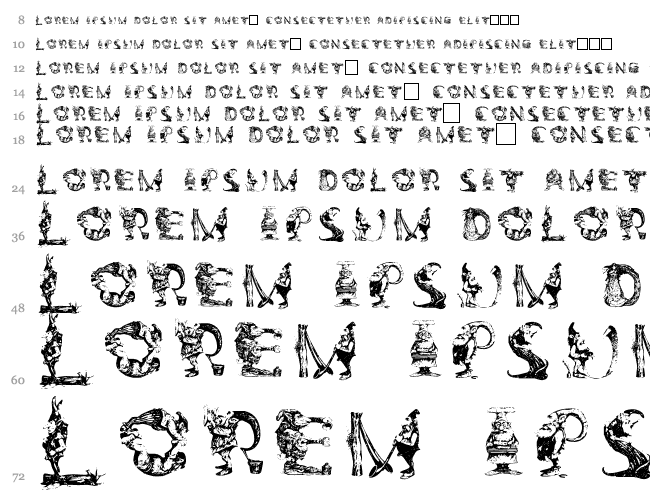 8 LOREM IPSUM DOLOR SIT AMET□ CONSECTETUER ADIPISCING ELIT□□□
10 LOREM IPSUM DOLOR SIT AMET□ CONSECTETUER ADIPISCING ELIT□□□
12 LOREM IPSUM DOLOR SIT AMET□ CONSECTETUER ADIPISCING
14 LOREM IPSUM DOLOR SIT AMET□ CONSECTETUER AD
16 LOREM IPSUM DOLOR SIT AMET□ CONSECTE
18 LOREM IPSUM DOLOR SIT AMET□ CONSECT
24 LOREM IPSUM DOLOR SIT AMET
36 LOREM IPSUM DOLOR
48 LOREM IPSUM D
60 LOREM IPSUM
72 LOREM IPS